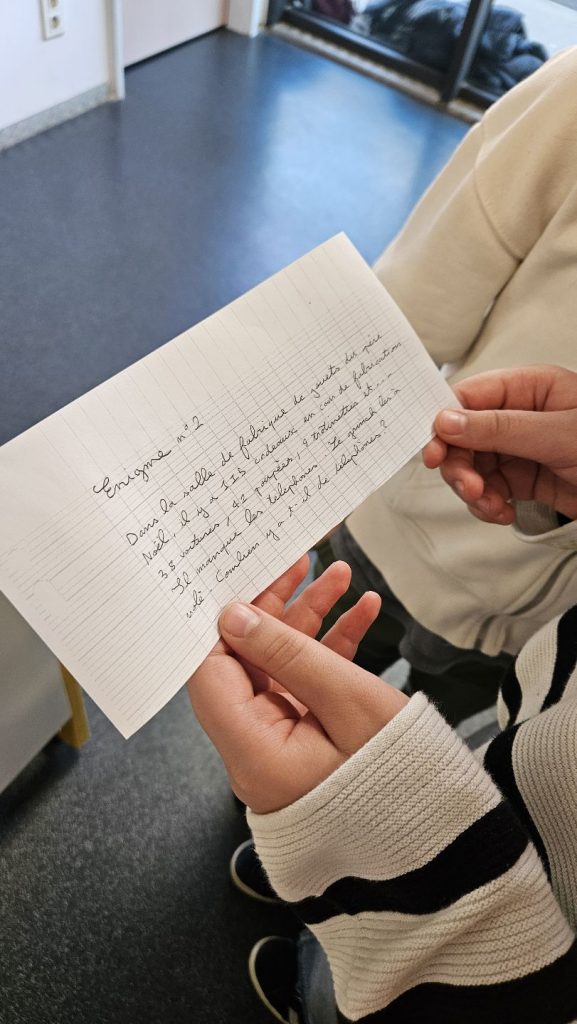 Enigme n°2
Dans la salle de fabrique de jouets du père
Noël, il y a 115 cadeaux en cour de fabrication
38 voitures, 42 poupées, 9 trotinettes et...
Il manque les telephones. Le grinch les a
volé. Combien y a t-il de telephones?